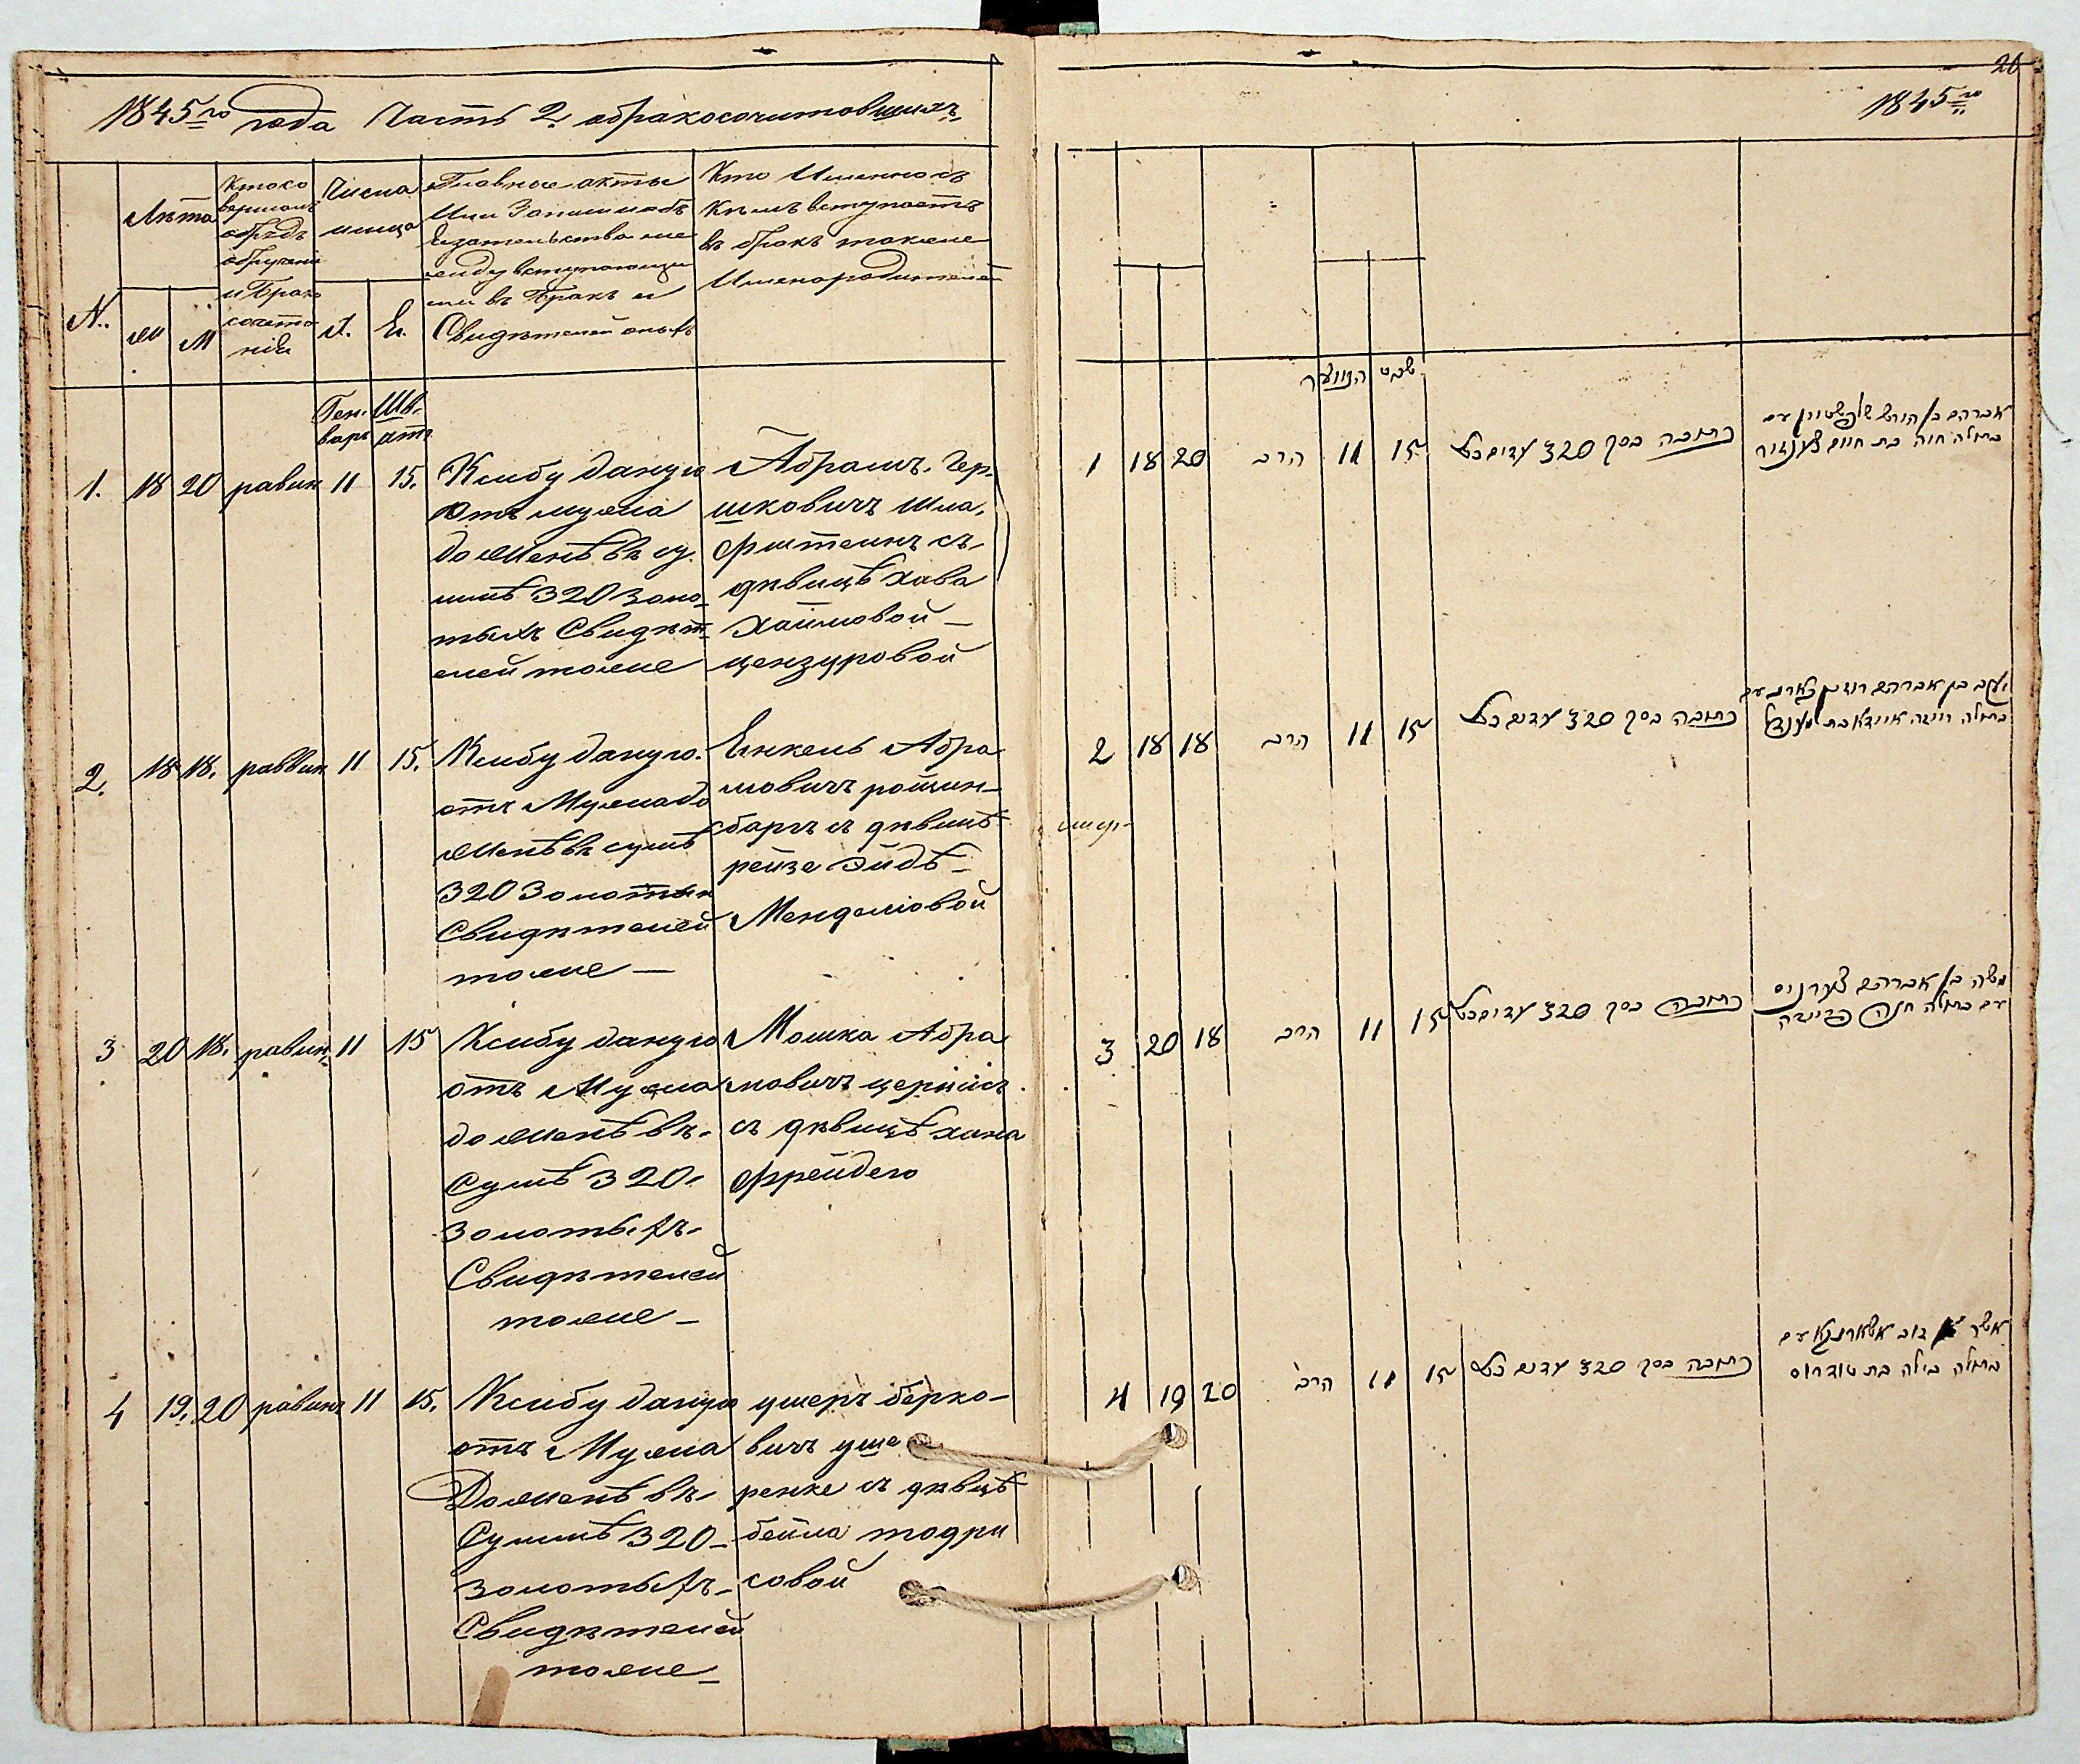 1845го года Часть 2. обракосочитовшихъ
N.
Лѣта
жи
М
Ктосо
вершалъ
обрядъ
обручені
и Брако
сочета
нія
Числа
мѣсца
Х.
Ев.
Главные акты
Или Записи
между вступающи
ми въ Бракъ и
Свидѣтелей оныхъ
Кто Именно съ
кѣмъ вступаетъ
въ бракъ также
Имена родителей
Ген.
варъ
Шв.
атъ
1. 18 20 равин 11 15.
Ксибу даную
отъ мужа
до женѣ въ су.
ммѣ 320 золо
тыхъ Свидѣт
елей тоже
Абрамъ Гер.
шковичъ Шла.
фштеинъ съ
дѣвицѣ хава
Хаимовой
цензуровой
2. 18 18. раввин 11 15.
Ксибу даную
отъ Мужа до
женѣ въ сумѣ
320 Золотых
Свидѣтелей
тоже
Енкель Абра
мовичъ ротин
баргъ съ дѣвицѣ
рейзе Эйдѣ
Менделювой
3 20 18. равин 11 15
Ксибу даную
отъ Мужа
до женѣ въ
Сумѣ 320
золотыхъ
Свидѣтелей
тоже
Мошка Абра
мовичъ
съ дѣвицѣ хана
Фрейдею
4 19. 20 равинъ 11 15.
Ксибу даную
отъ Мужа
До женѣ въ
Суммѣ 320
золотыхъ
Свидѣтелей
тоже
ушеръ берко
вичъ уше
ренке съ дѣвцѣ
бейла тодри
совой
26
1845го
שבט
1 18 20 הרב 11 15 כתובה בסך 320 עדים כנ״ל
אברהם בן הירש שלאפשטיין עם
בתולה חוה בת חיים צענזור
2 18 18 הרב 11 15 כתובה בסך 320 עדים כנ״ל
יעקב בן אברהם עם
בתולה רייזה איידא בת מענדל
3 20 18 הרב 11 15 כתובה בסך 320 עדים כנ״ל
משה בן אברהם
עם בתולה חנה פריידה
4 19 20 הרב 11 15 כתובה בסך 320 עדים כנ״ל
אשר בן דוב עם
בתולה בילה בת טודרוס